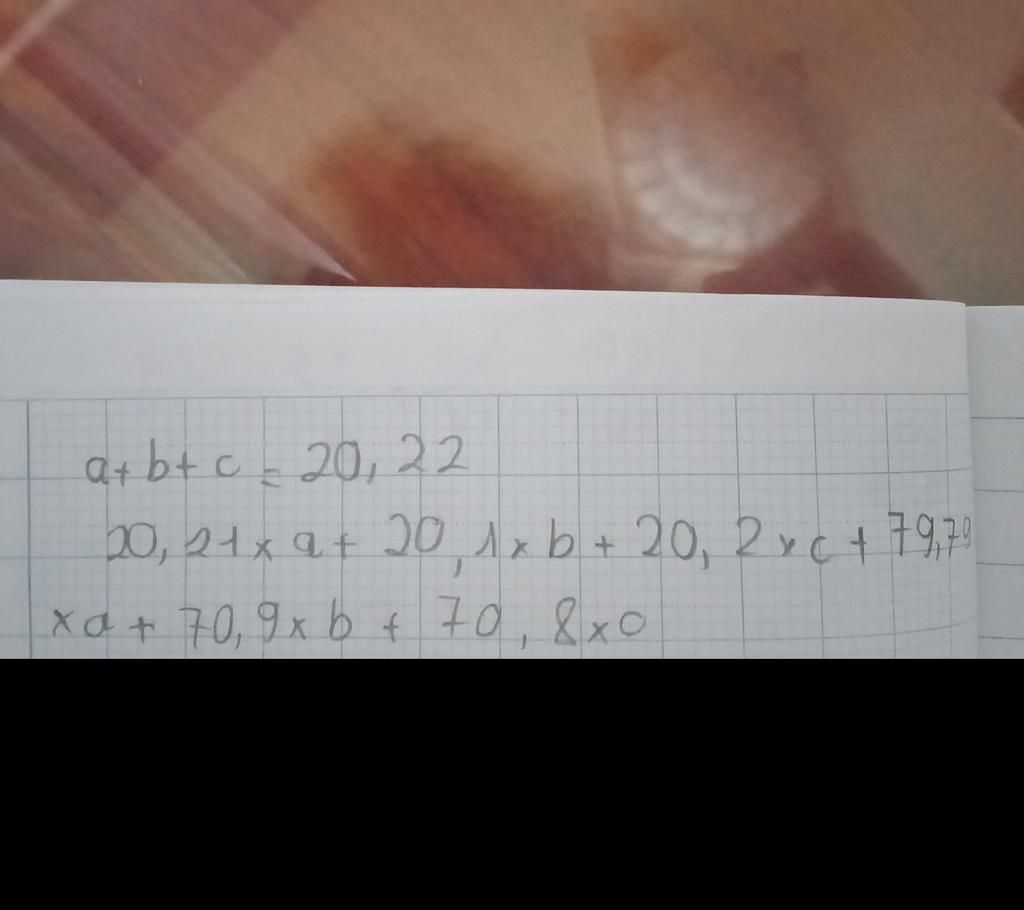 a+b+c = 20,22
20,21×a+ 20,1×b + 20,2×c + 79,79
×a + 70,9×b + 70,8×c